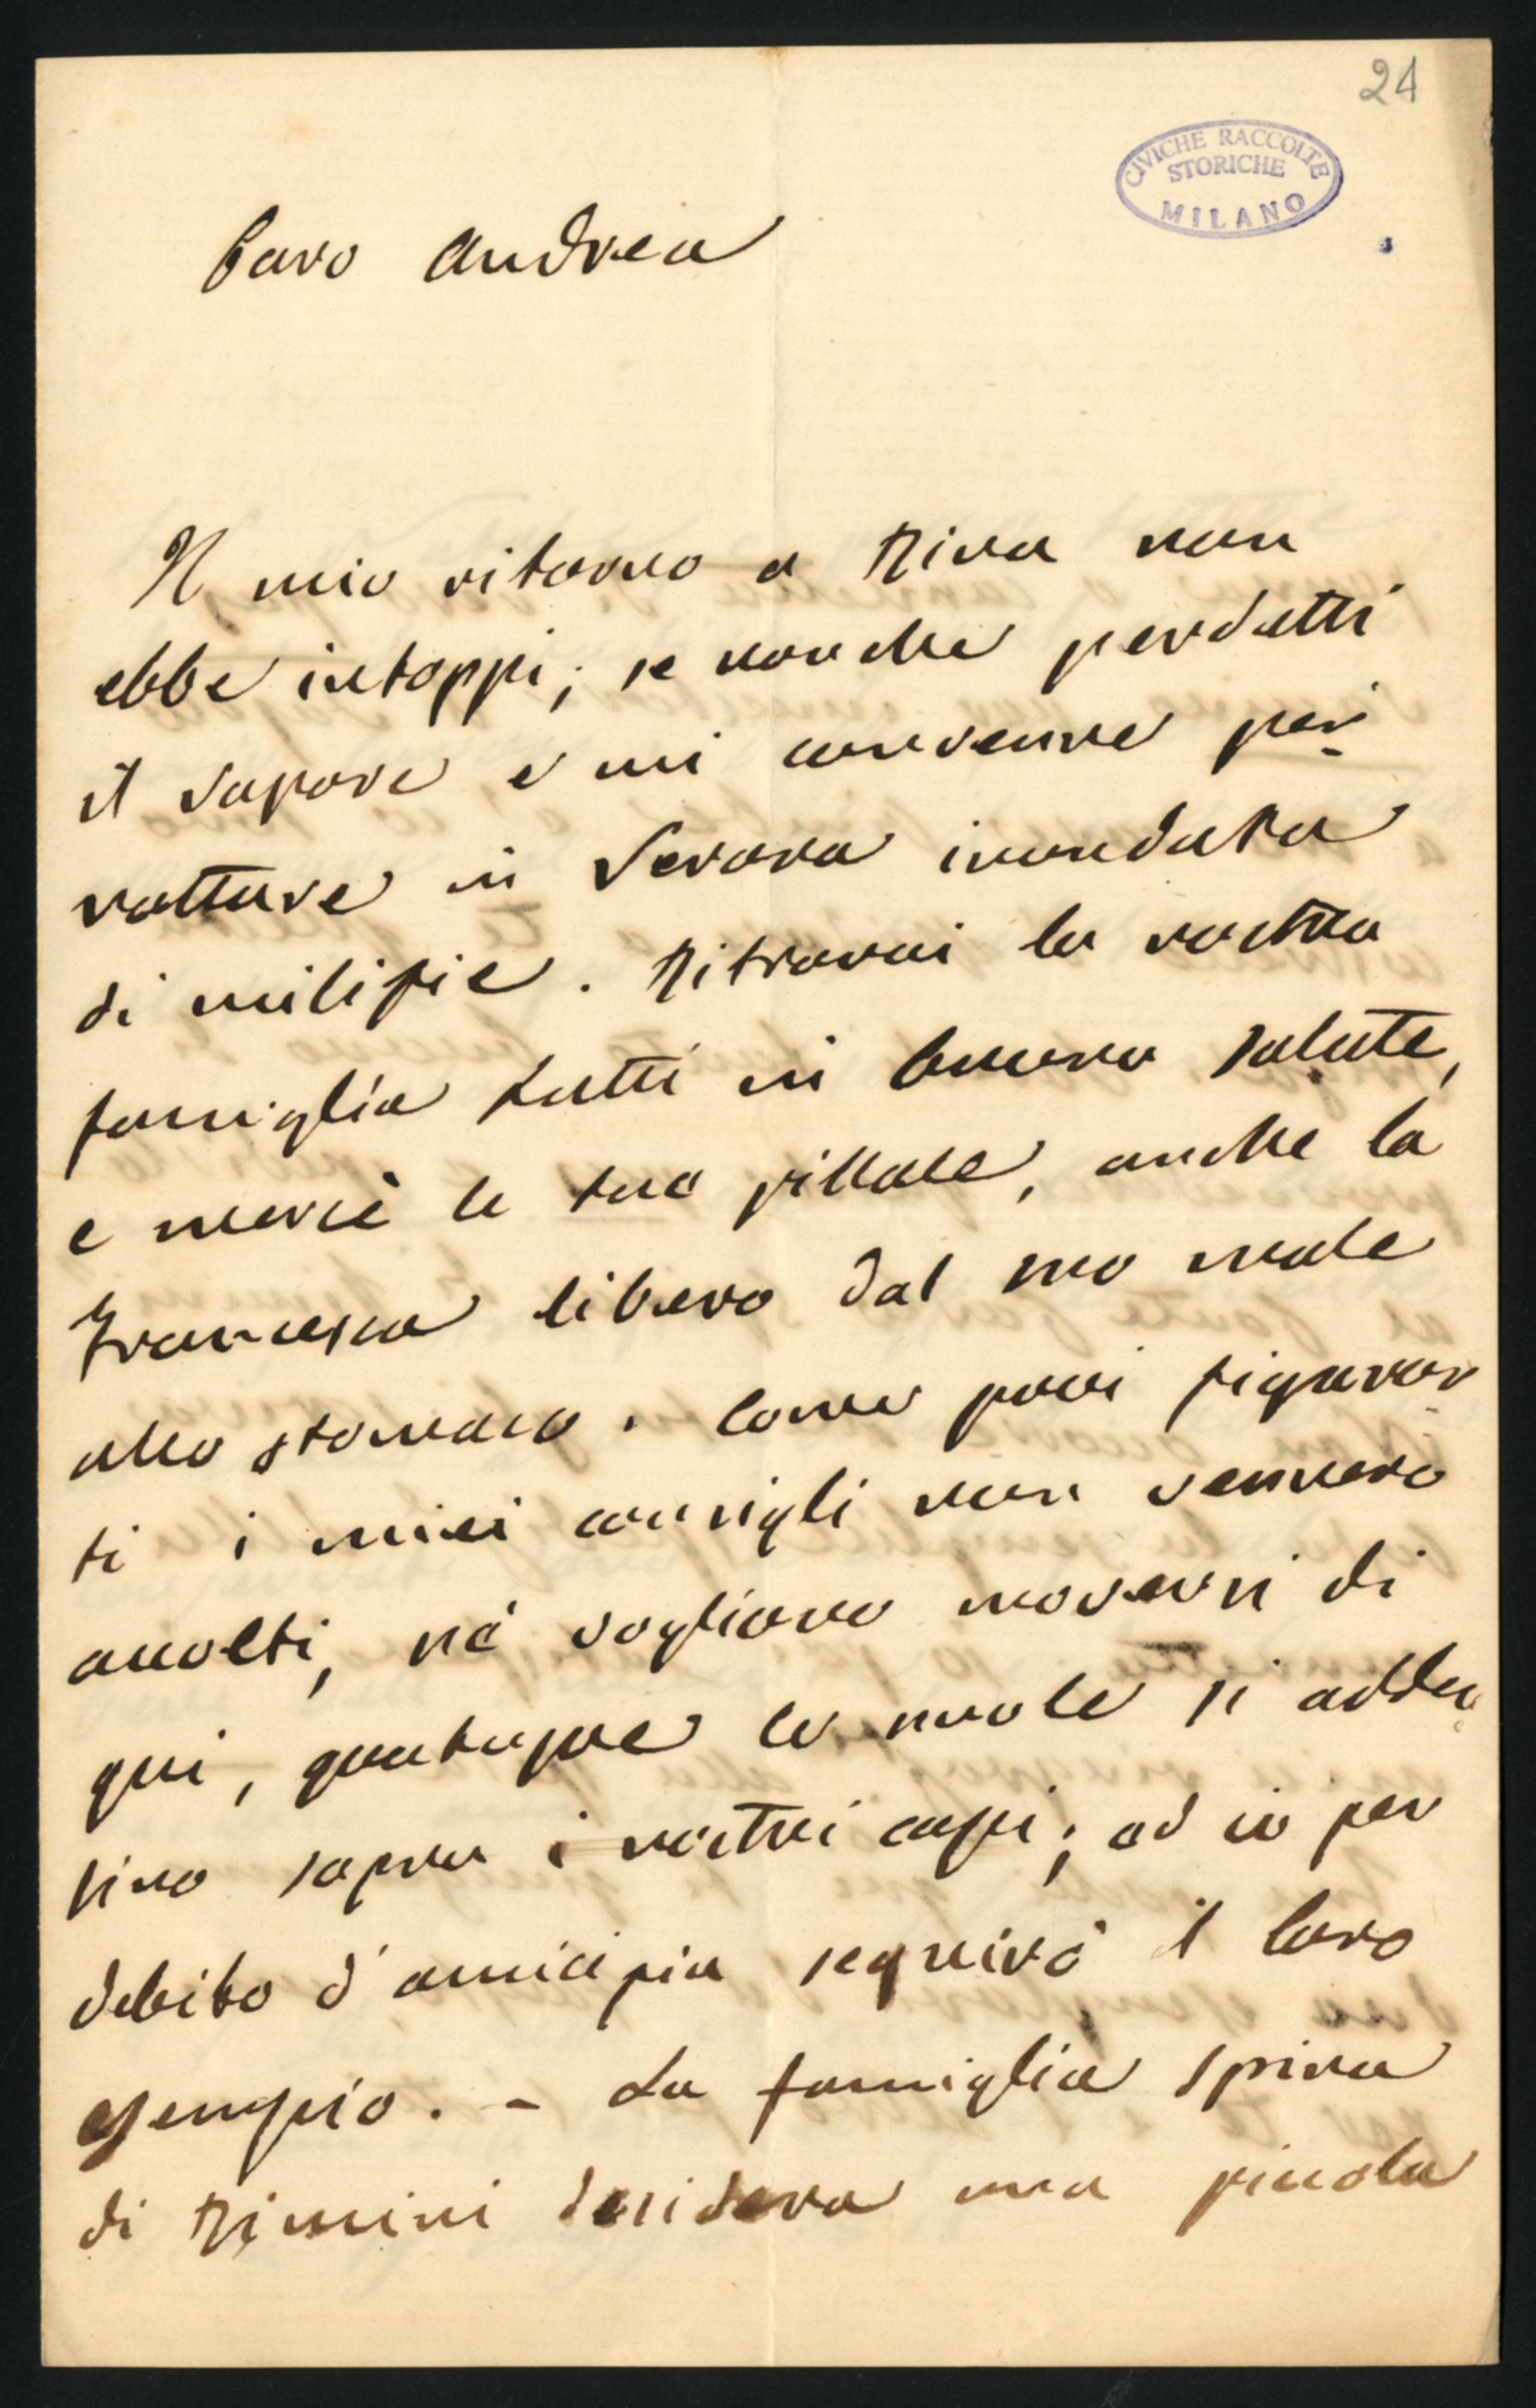 24
CIVICHE RACCOLTE
STORICHE
MILANO
Caro Andrea
Il mio ritorno a Riva non
ebbe intoppi; se nonche perdetti
il vapore e mi convenne per
nottare in Verona inondata
di milizie. Ritrovai la vostra
famiglia tutti in buona salute,
e mercè le tue pillole, anche la
Francesca libera dal suo male
allo stomaco. Come puoi figurar
ti i miei consigli non vennero
accolti, nè vogliono moversi di
qui, quantunque le nuvole si adden
sino sopra i vostri capi; ed io per
debito d'amicizia seguirò il loro
esempio. - La famiglia Spina
di Rimini desidera una piccola